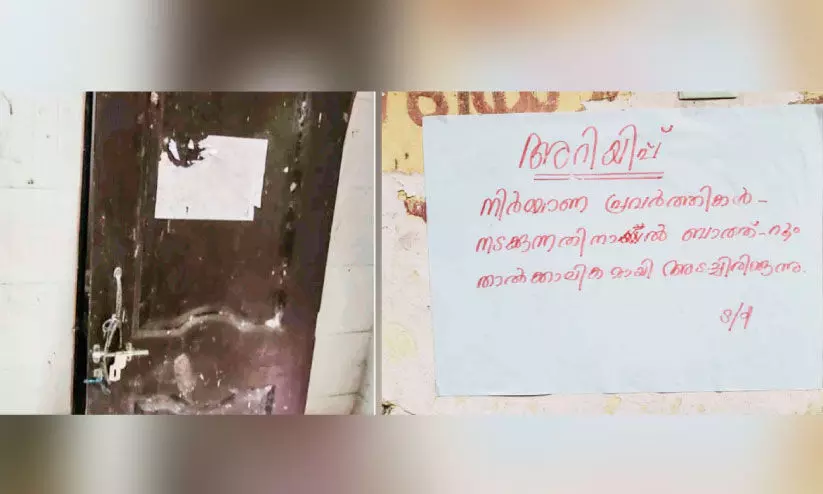 അറിയിപ്പ്
നിർമ്മാണ പ്രവർത്തികൾ-
നടക്കുന്നതിനാൽ ബാത്ത്-റൂം
താൽക്കാലികമായി അടച്ചിരിക്കുന്നു.